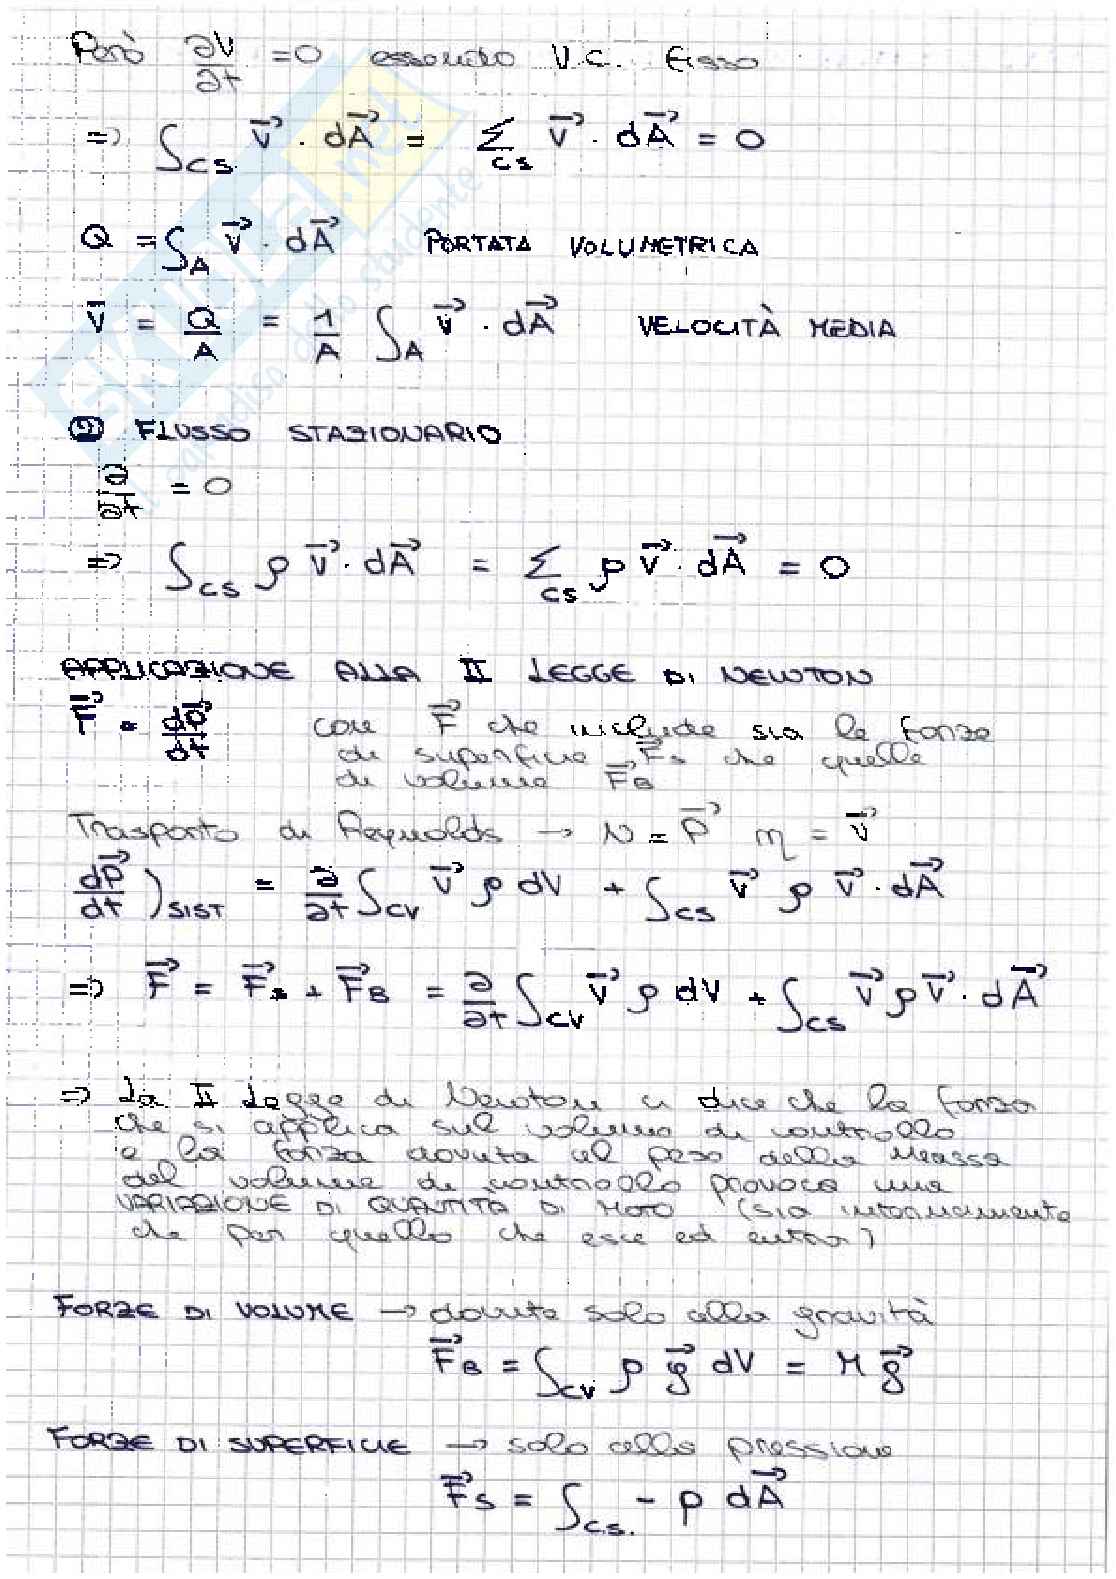 Però ∂V/∂t = 0 essendo V.C. fisso
=> ∫CS V⃗ · dA⃗ = ΣCS V⃗ · dA⃗ = 0
Q = ∫A V⃗ · dA⃗ PORTATA VOLUMETRICA
V̄ = Q/A = 1/A ∫A V⃗ · dA⃗ VELOCITÀ MEDIA
② FLUSSO STAZIONARIO
∂/∂t = 0
=> ∫CS ρ V⃗ · dA⃗ = ΣCS ρ V⃗ · dA⃗ = 0
APPLICAZIONE ALLA II LEGGE DI NEWTON
F⃗ = dP⃗/dt con F⃗ che include sia le forze
di superficie F⃗s che quelle
di volume F⃗B
Trasporto di Reynolds → N = P⃗ η = V⃗
dP⃗/dt )SIST = ∂/∂t ∫CV V⃗ ρ dV + ∫CS V⃗ ρ V⃗ · dA⃗
=> F⃗ = F⃗s + F⃗B = ∂/∂t ∫CV V⃗ ρ dV + ∫CS V⃗ ρ V⃗ · dA⃗
=> La II Legge di Newton ci dice che la forza
che si applica sul volume di controllo
e la forza dovuta al peso della massa
del volume di controllo provoca una
VARIAZIONE DI QUANTITÀ DI MOTO (sia internamente
che per quello che esce ed entra)
FORZE DI VOLUME → dovute solo alla gravità
F⃗B = ∫CV ρ g⃗ dV = M g⃗
FORZE DI SUPERFICIE → solo alla pressione
F⃗S = ∫C.S. - p dA⃗
SKUOLA.net
il paradiso dello studente